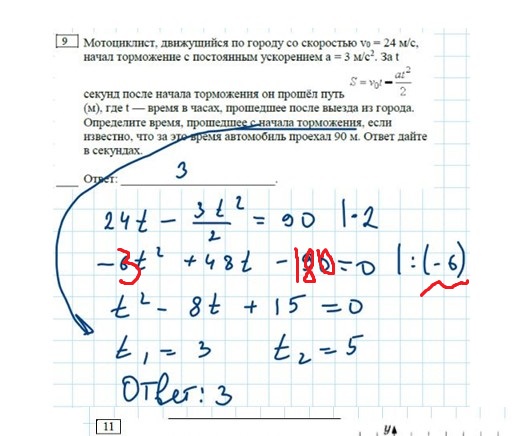 9 Мотоциклист, движущийся по городу со скоростью v₀ = 24 м/с,
начал торможение с постоянным ускорением a = 3 м/с². За t
секунд после начала торможения он прошёл путь S = v₀t - at²/2
(м), где t — время в часах, прошедшее после выезда из города.
Определите время, прошедшее с начала торможения, если
известно, что за это время автомобиль проехал 90 м. Ответ дайте
в секундах.
Ответ: 3
24t - 3t²/2 = 90 |·2
-3t² + 48t - 180 = 0 |:(-6)
t² - 8t + 15 = 0
t₁ = 3 t₂ = 5
Ответ: 3
11
y